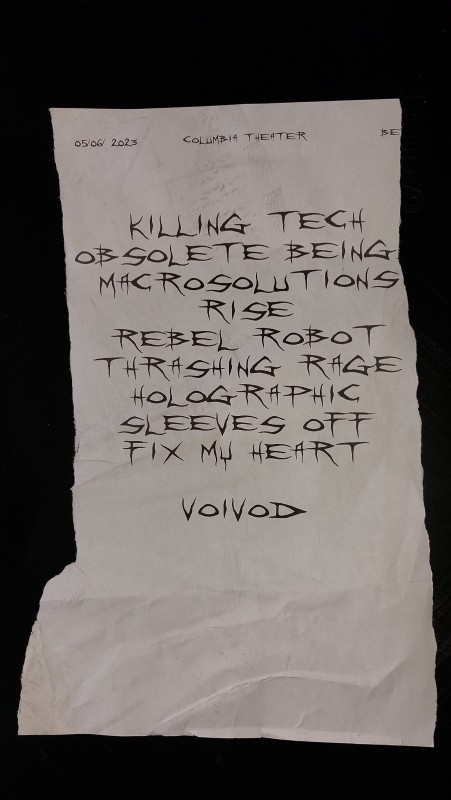 05/06/ 2023 COLUMBIA THEATER BE
KILLING TECH
OBSOLETE BEING
MACROSOLUTIONS
RISE
REBEL ROBOT
THRASHING RAGE
HOLOGRAPHIC
SLEEVES OFF
FIX MY HEART
VOIVOD